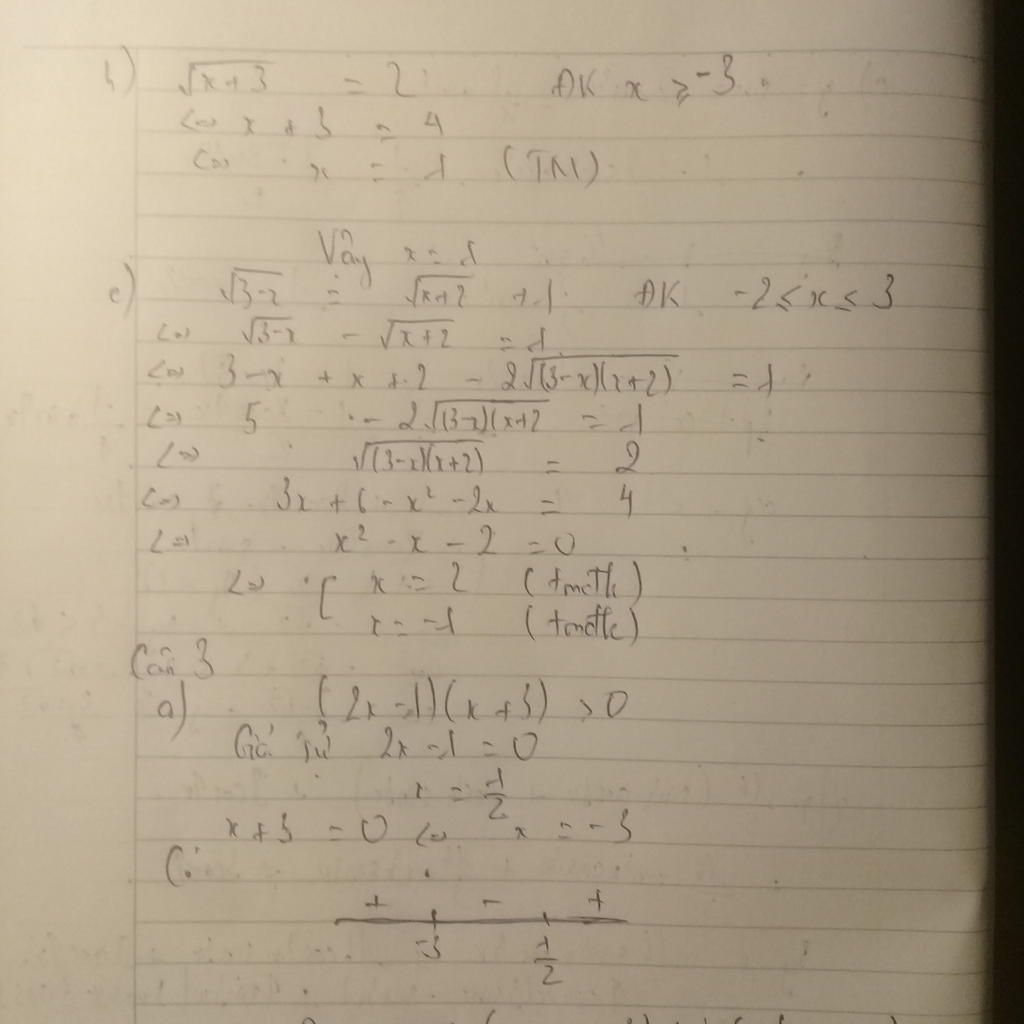 b) √(x+3) = 2 ĐK x ≥ -3
<=> x + 3 = 4
<=> x = 1 (TM)
Vậy x = 1
c) √(3-x) = √(x+2) + 1 ĐK -2 ≤ x ≤ 3
<=> √(3-x) - √(x+2) = 1
<=> 3-x + x + 2 - 2√((3-x)(x+2)) = 1
<=> 5 - 2√((3-x)(x+2) = 1
<=> √((3-x)(x+2)) = 2
<=> 3x + 6 - x² - 2x = 4
<=> x² - x - 2 = 0
<=> [ x = 2 (tmđk)
x = -1 (tmđk)
Câu 3
a) (2x-1)(x+3) > 0
Giả sử 2x-1 = 0
x = 1/2
x+3 = 0 <=> x = -3
Có
+ - +
-3 1/2